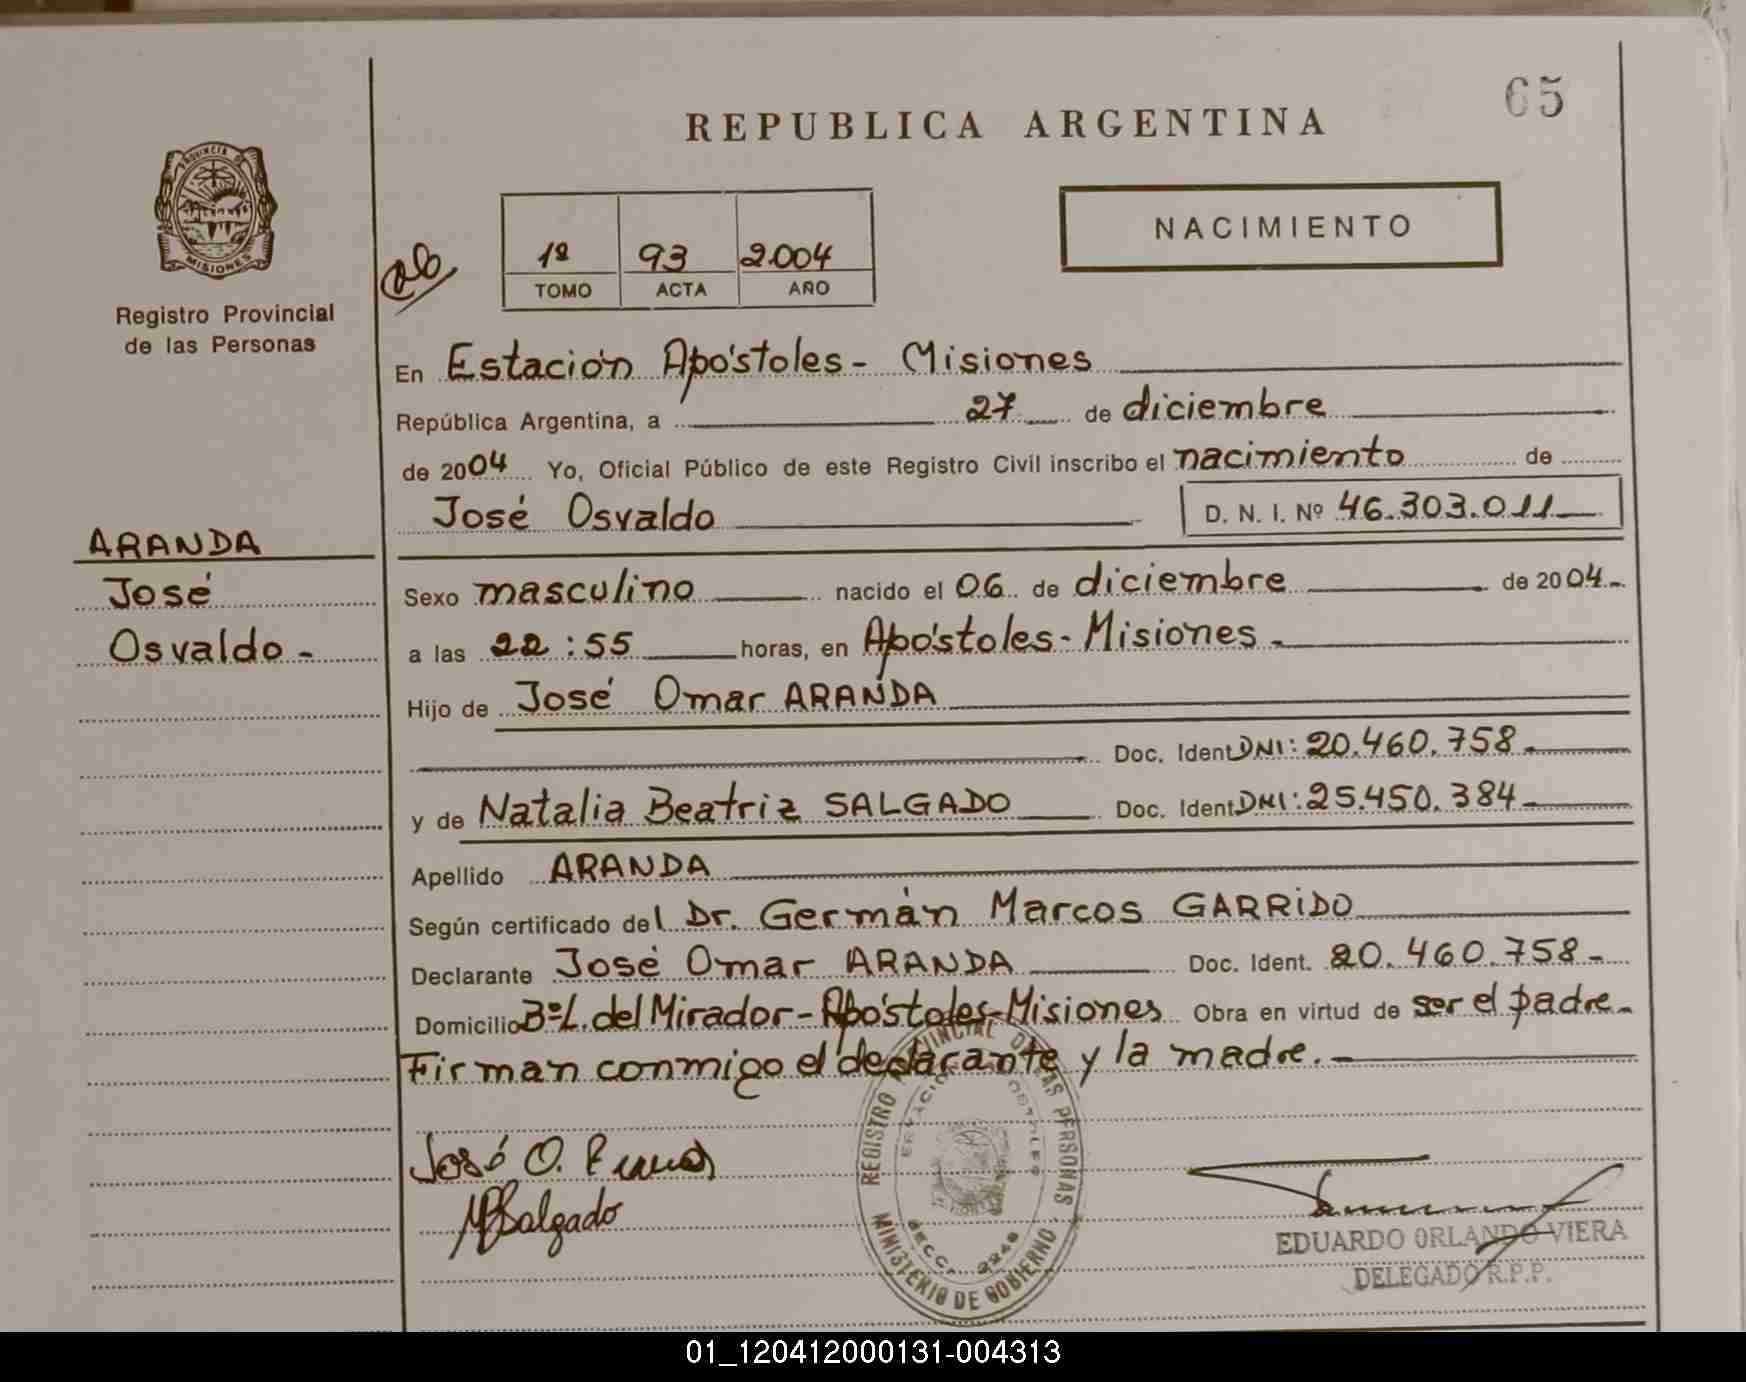 65
REPUBLICA ARGENTINA
PROVINCIA DE
MISIONES
Registro Provincial
de las Personas
1º 93 2.004
TOMO ACTA AÑO
NACIMIENTO
En Estación Apóstoles - Misiones
República Argentina, a 27 de diciembre
de 2004 Yo, Oficial Público de este Registro Civil inscribo el nacimiento de
José Osvaldo D. N. I. Nº 46.303.011
ARANDA
José
Osvaldo -
Sexo masculino nacido el 06 de diciembre de 2004.-
a las 22:55 horas, en Apóstoles - Misiones -
Hijo de José Omar ARANDA
Doc. Ident DNI: 20.460.758-
y de Natalia Beatriz SALGADO Doc. Ident. DNI: 25.450.384-
Apellido ARANDA
Según certificado del Dr. Germán Marcos GARRIDO
Declarante José Omar ARANDA Doc. Ident. 20.460.758-
Domicilio Bº L. del Mirador - Apóstoles - Misiones Obra en virtud de ser el padre.-
Firman conmigo el declarante y la madre.-
José O.
Salgado
REGISTRO PROVINCIAL DE LAS PERSONAS
MINISTERIO DE GOBIERNO
EDUARDO ORLANDO VIERA
DELEGADO R.P.P.
01_120412000131-004313